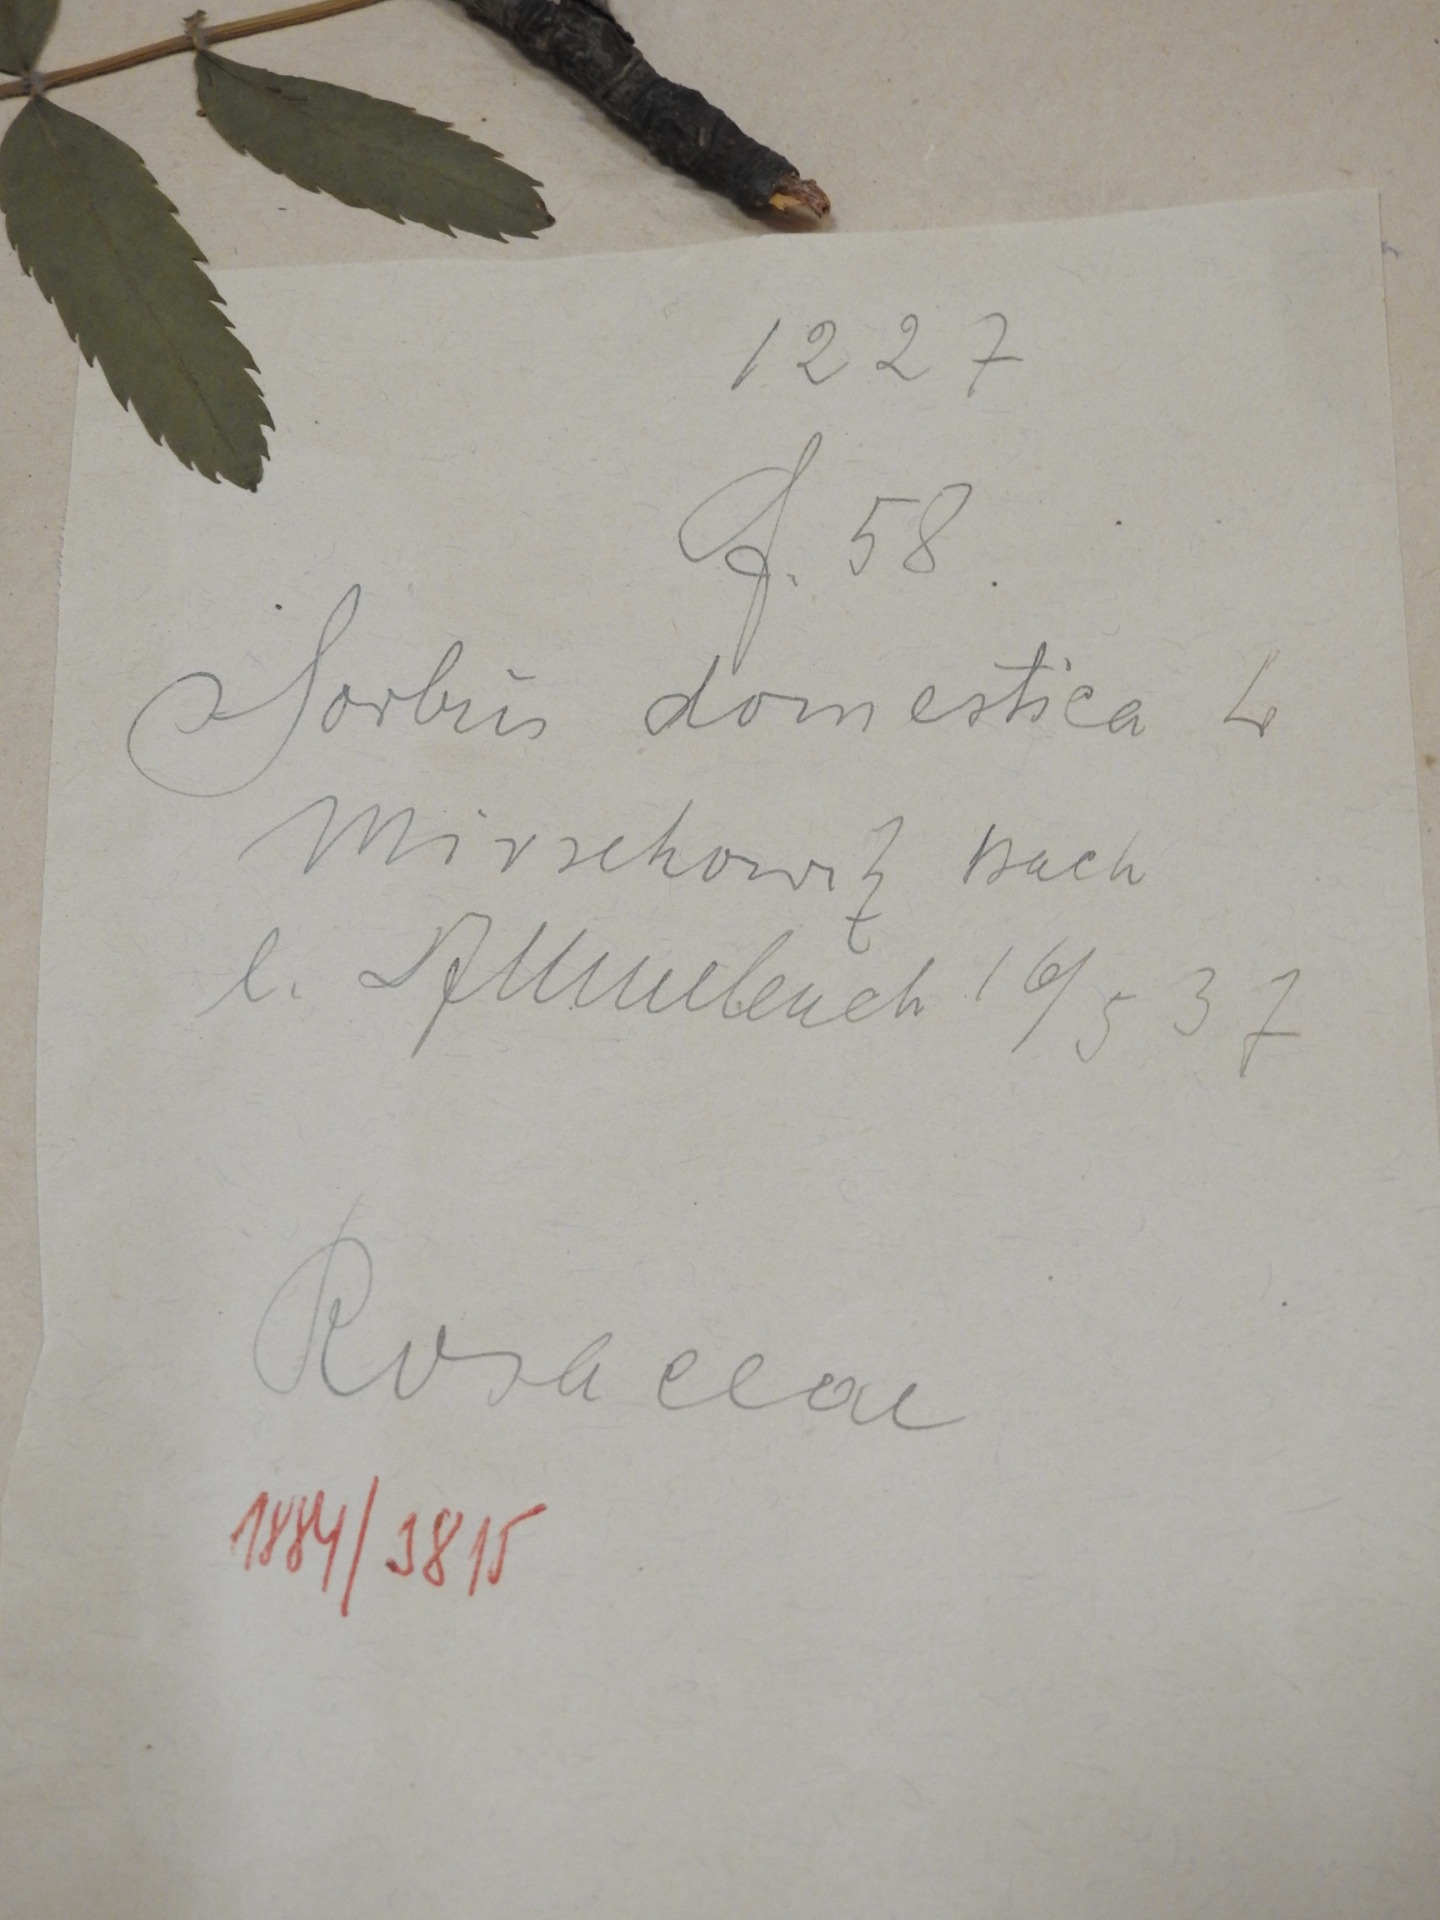 1227
f. 58.
Sorbus domestica L
Mirschowitz Bach
l. 16/5 37
Rosaceae
1884/3815